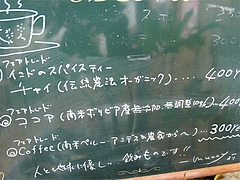 フェアトレード
インドのスパイスティー
チャイ(伝統農法オーガニック)..... 400
フェアトレード
ココア(南米ボリビア産 無添加、無調整100%)…400
フェアトレード
Coffee(南米ペルー・アンデスの農家から〜)…300
人と地球に優しい 飲みものです!!